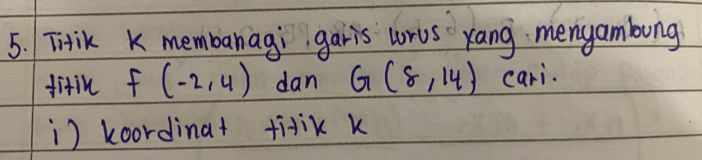 5. Titik K membahagi garis lurus yang menyambung
titik F (-2,4) dan G (8,14) cari.
i) koordinat titik k